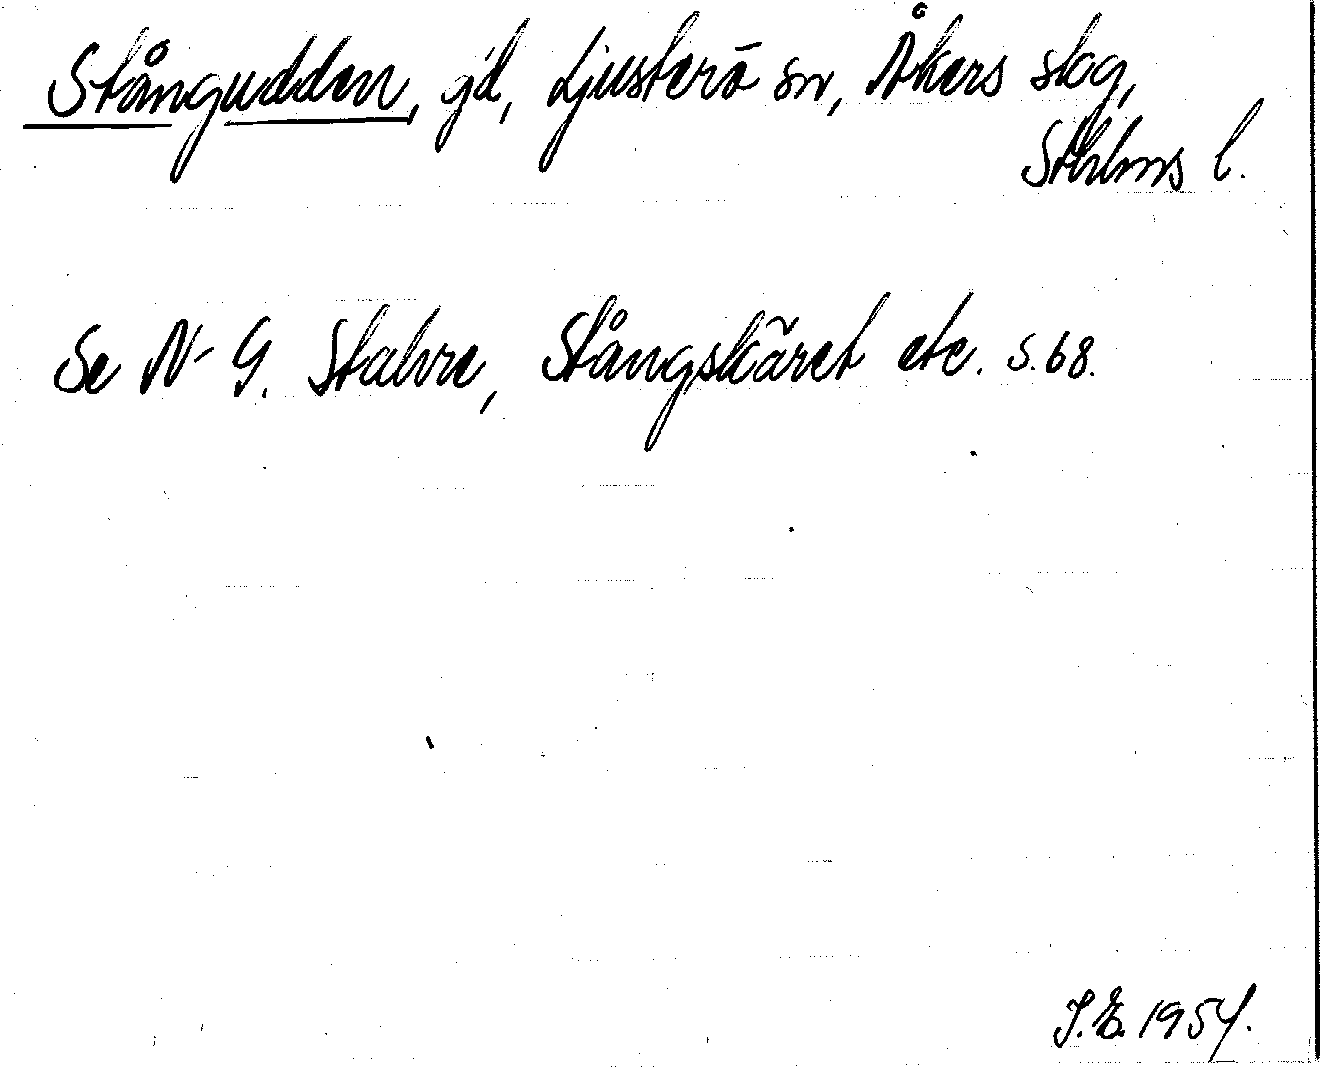 Stångudden, gd, Ljusterö sn, Åkers skg,
Sthlms l.
Se N-G. Stahre, Stångskäret etc. s. 68.
J.E. 1954.